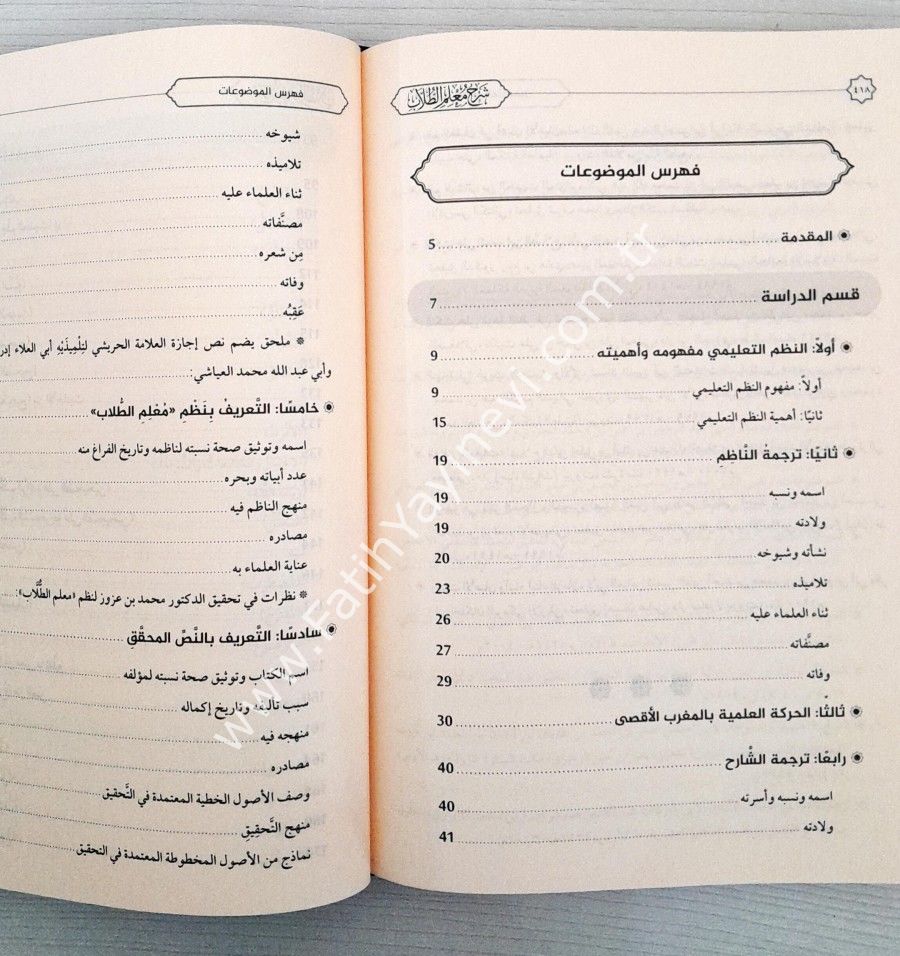 ٤١٨
شرح معلم الطلاب
فهرس الموضوعات
المقدمة 5
قسم الدراسة 7
أولاً: النظم التعليمي مفهومه وأهميته 9
أولاً: مفهوم النظم التعليمي 9
ثانيًا: أهمية النظم التعليمي 15
ثانيًا: ترجمةُ النَّاظِمِ 19
اسمه ونسبه 19
ولادته 19
نشأته وشيوخه 20
تلاميذه 23
ثناء العلماء عليه 26
مصنَّفاته 27
وفاته 29
ثالثًا: الحركة العلمية بالمغرب الأقصى 30
رابعًا: ترجمة الشَّارح 40
اسمه ونسبه وأسرته 40
ولادته 41
فهرس الموضوعات
شيوخه
تلاميذه
ثناء العلماء عليه
مصنَّفاته
مِن شعره
وفاته
عَقِبُه
* ملحق يضم نص إجازة العلامة الحريشي لتِلْمِيذَيْهِ أبي العلاء
وأبي عبد الله محمد العياشي:
خامسًا: التَّعريفُ بِنَظْمِ «مُعْلِمِ الطُّلاب»
اسمه وتوثيق صحة نسبته لناظمه وتاريخ الفراغ منه
عدد أبياته وبحره
منهج الناظم فيه
مصادره
عناية العلماء به
* نظرات في تحقيق الدكتور محمد بن عزوز لنظم «معلم الطُّلَّاب»:
سادسًا: التَّعريف بالنَّصِّ المحقَّقِ
اسم الكتاب وتوثيق صحة نسبته لمؤلفه
سبب تأليفه وتاريخ إكماله
منهجه فيه
مصادره
وصف الأصول الخطية المعتمدة في التَّحقيق
منهج التَّحقِيقِ
نماذج من الأصول المخطوطة المعتمدة في التحقيق
www.FatihYayinevi.com.tr